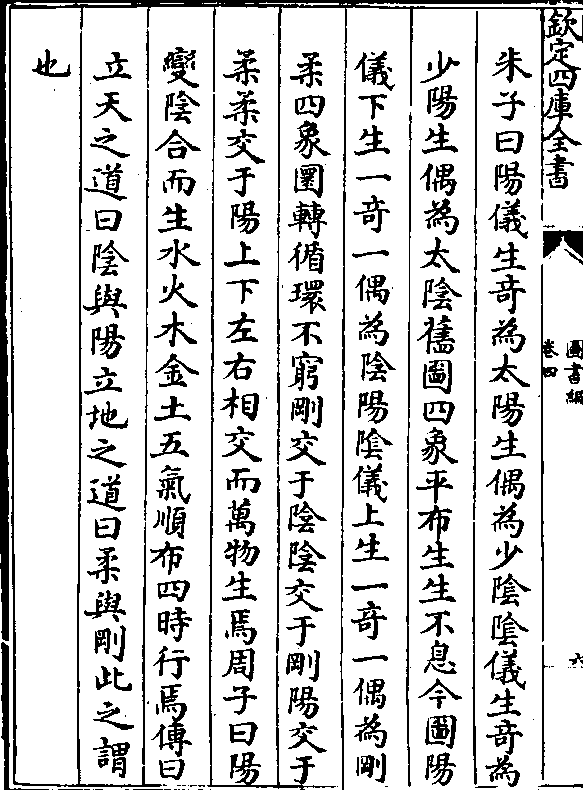 欽定四庫全書
圖書編
卷四
六
朱子曰陽儀生奇為太陽生偶為少陰陰儀生奇為
少陽生偶為太陰舊圖四象平布生生不息今圖陽
儀下生一奇一偶為陰陽陰儀上生一奇一偶為剛
柔四象圜轉循環不窮剛交于陰陰交于剛陽交于
柔柔交于陽上下左右相交而萬物生焉周子曰陽
變陰合而生水火木金土五氣順布四時行焉傳曰
立天之道曰陰與陽立地之道曰柔與剛此之謂
也